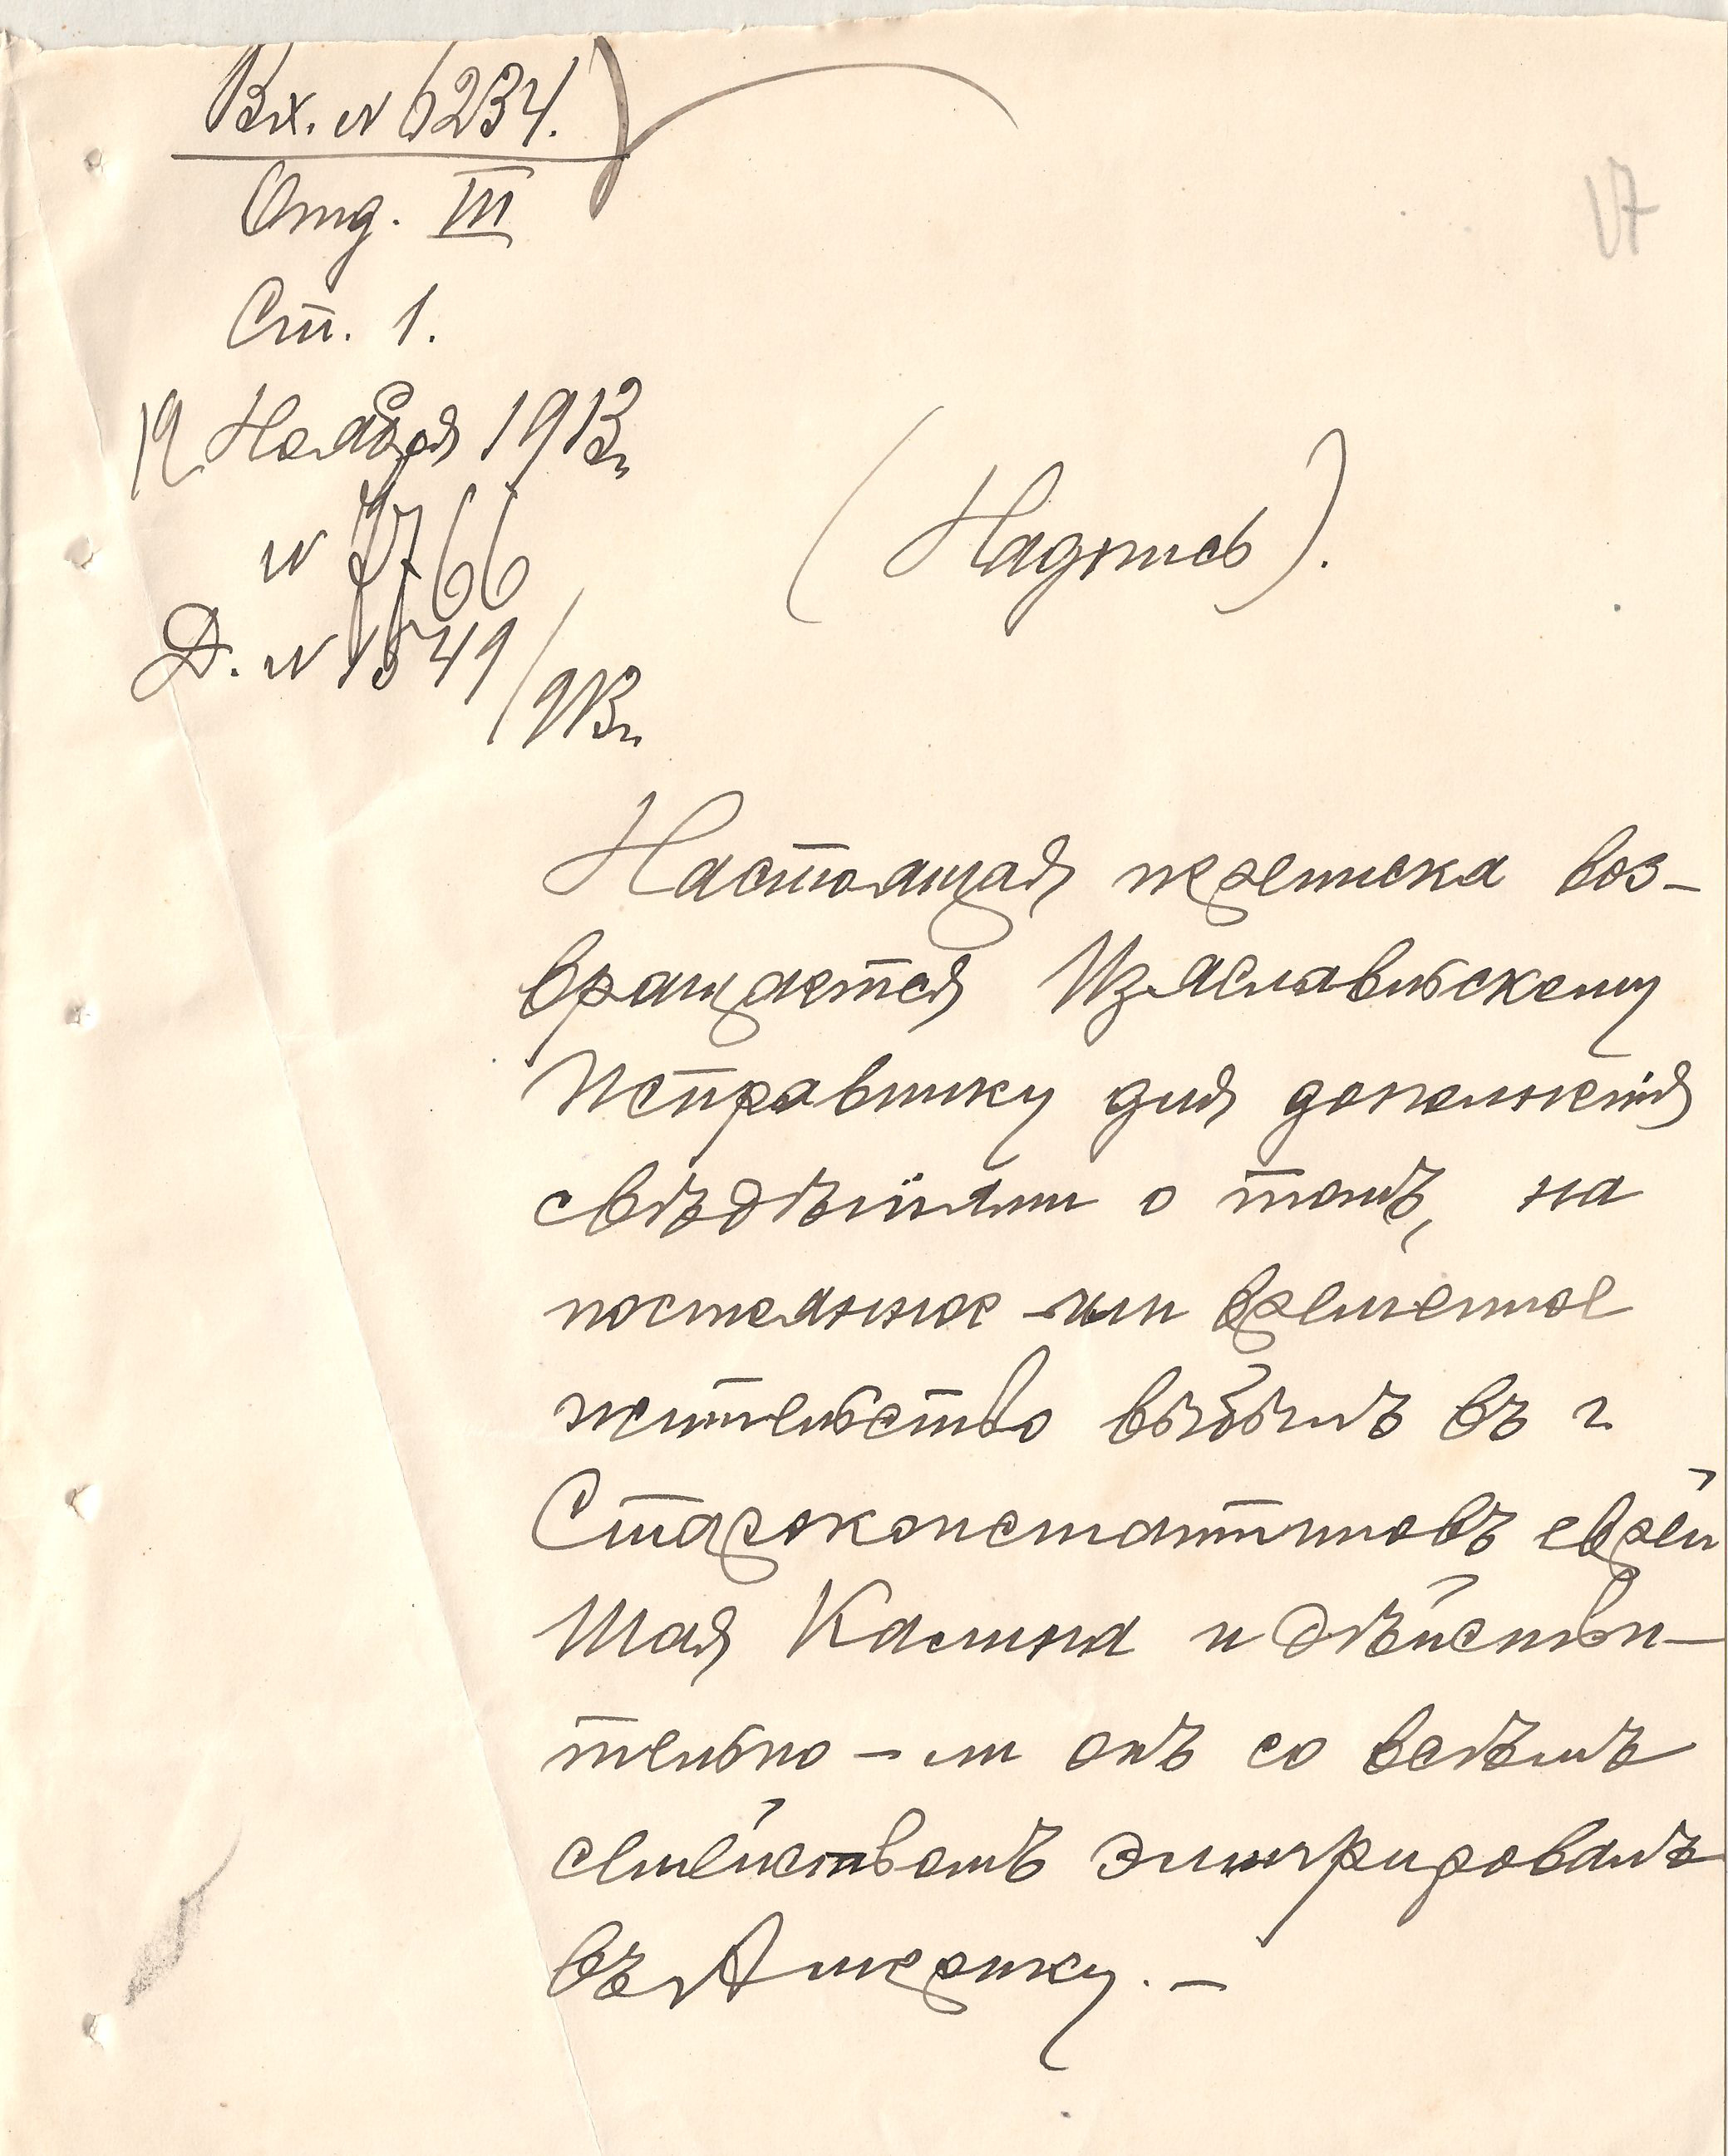 Вх. № 6234.
Отд. III
Ст. 1.
19 Ноября 1913 г.
№ 7766
Д. № 1549/913 г.
17
(Надпись).
Настоящая переписка воз-
вращается Изяславльскому
Исправнику для дополненія
свѣдѣніями о томъ, на
постоянное-или временное
жительство выбылъ въ г.
Староконстантиновъ еврей
Шая Калина и дѣйстви-
тельно-ли онъ со всѣмъ
семействомъ эмигрировалъ
въ Америку. —